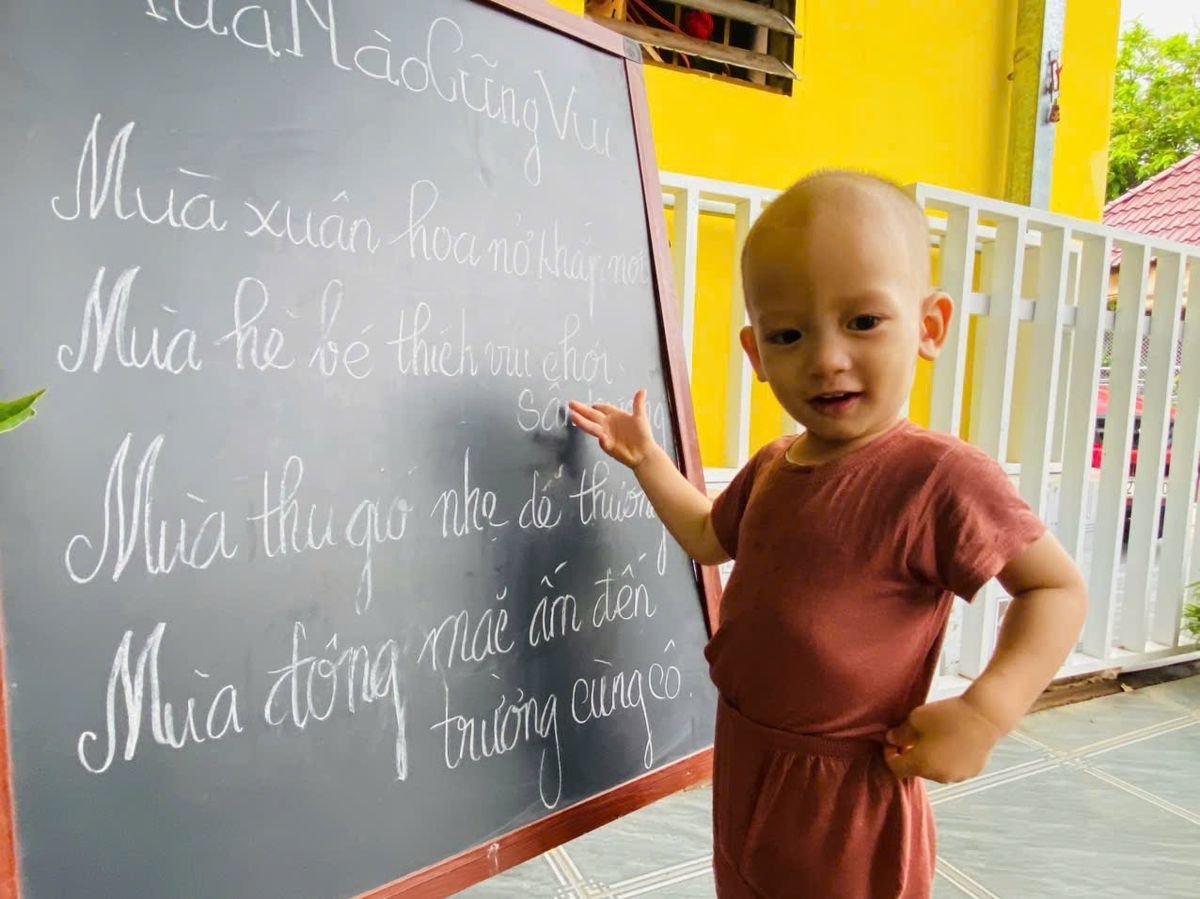 Mào Cũng Vui
Mùa xuân hoa nở khắp nơi
Mùa hè bé thích vui chơi
sân
Mùa thu gió nhẹ dễ thương
Mùa đông mặc ấm đến
trường cùng cô.